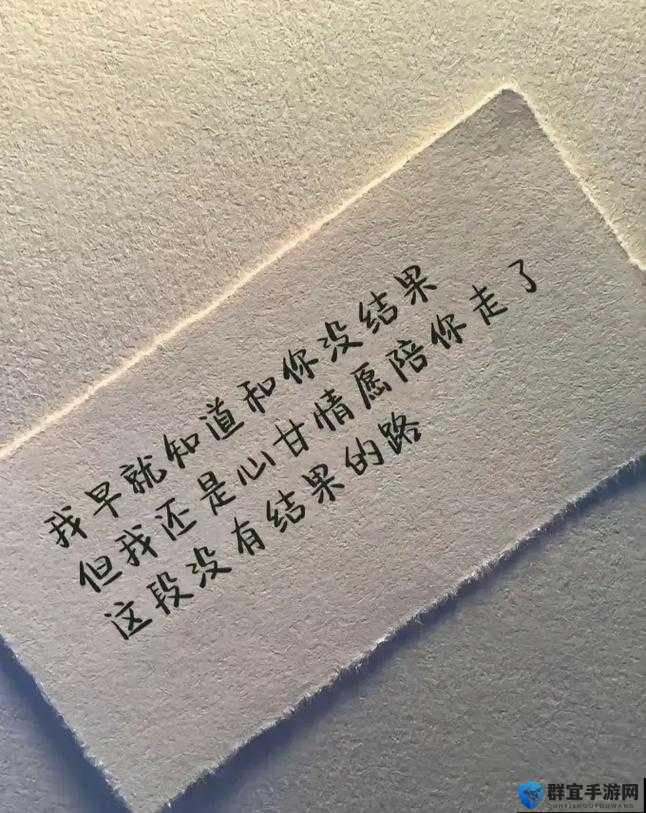 我早就知道和你没结果
但我还是心甘情愿陪你走了
这段没有结果的路
群宜手游网
QUNYISHOUYOUWANG